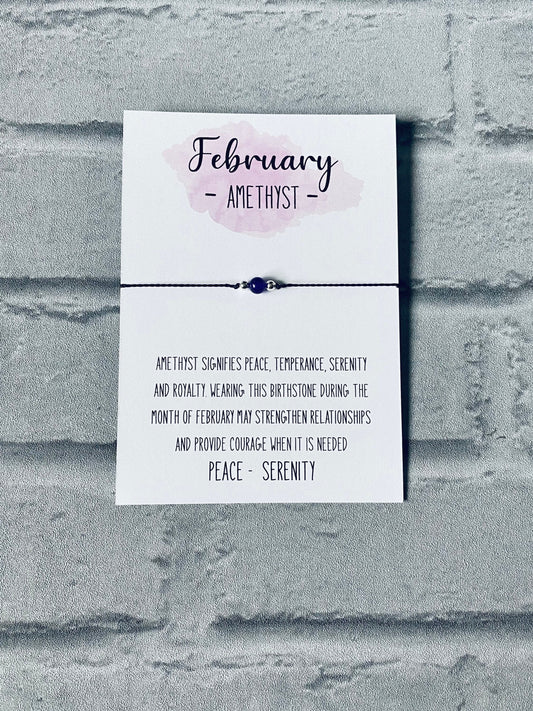 February
- AMETHYST -
AMETHYST SIGNIFIES PEACE, TEMPERANCE, SERENITY
AND ROYALTY. WEARING THIS BIRTHSTONE DURING THE
MONTH OF FEBRUARY MAY STRENGTHEN RELATIONSHIPS
AND PROVIDE COURAGE WHEN IT IS NEEDED
PEACE - SERENITY